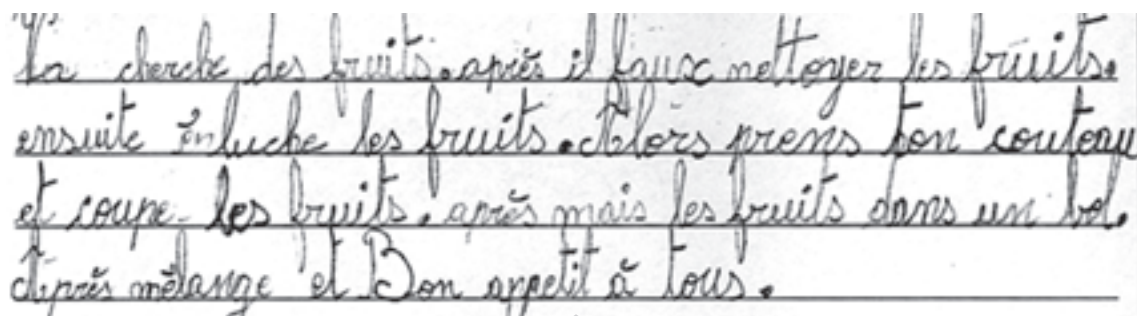 Va cherche des fruits. après il faux nettoyer les fruits.
ensuite énluche les fruits. Alors prens ton couteau
et coupe les fruits. après mais les fruits dans un bol.
Après mélange et Bon appetit à tous.